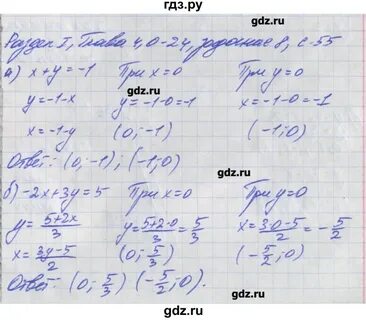 гдз.ру
Раздел I, Глава 4, О-24, задание 8, с-55
а) x+y=-1 При x=0 При y=0
y=-1-x y=-1-0=-1 x=-1-0=-1
x=-1-y (0;-1) (-1;0)
Ответ: (0;-1); (-1;0)
б) -2x+3y=5 При x=0 При y=0
y=5+2x/3 y=5+2·0/3=5/3 x=3·0-5/2=-5/2
x=3y-5/2 (0;5/3) (-5/2;0)
Ответ: (0;5/3) (-5/2;0).
гдз.ру